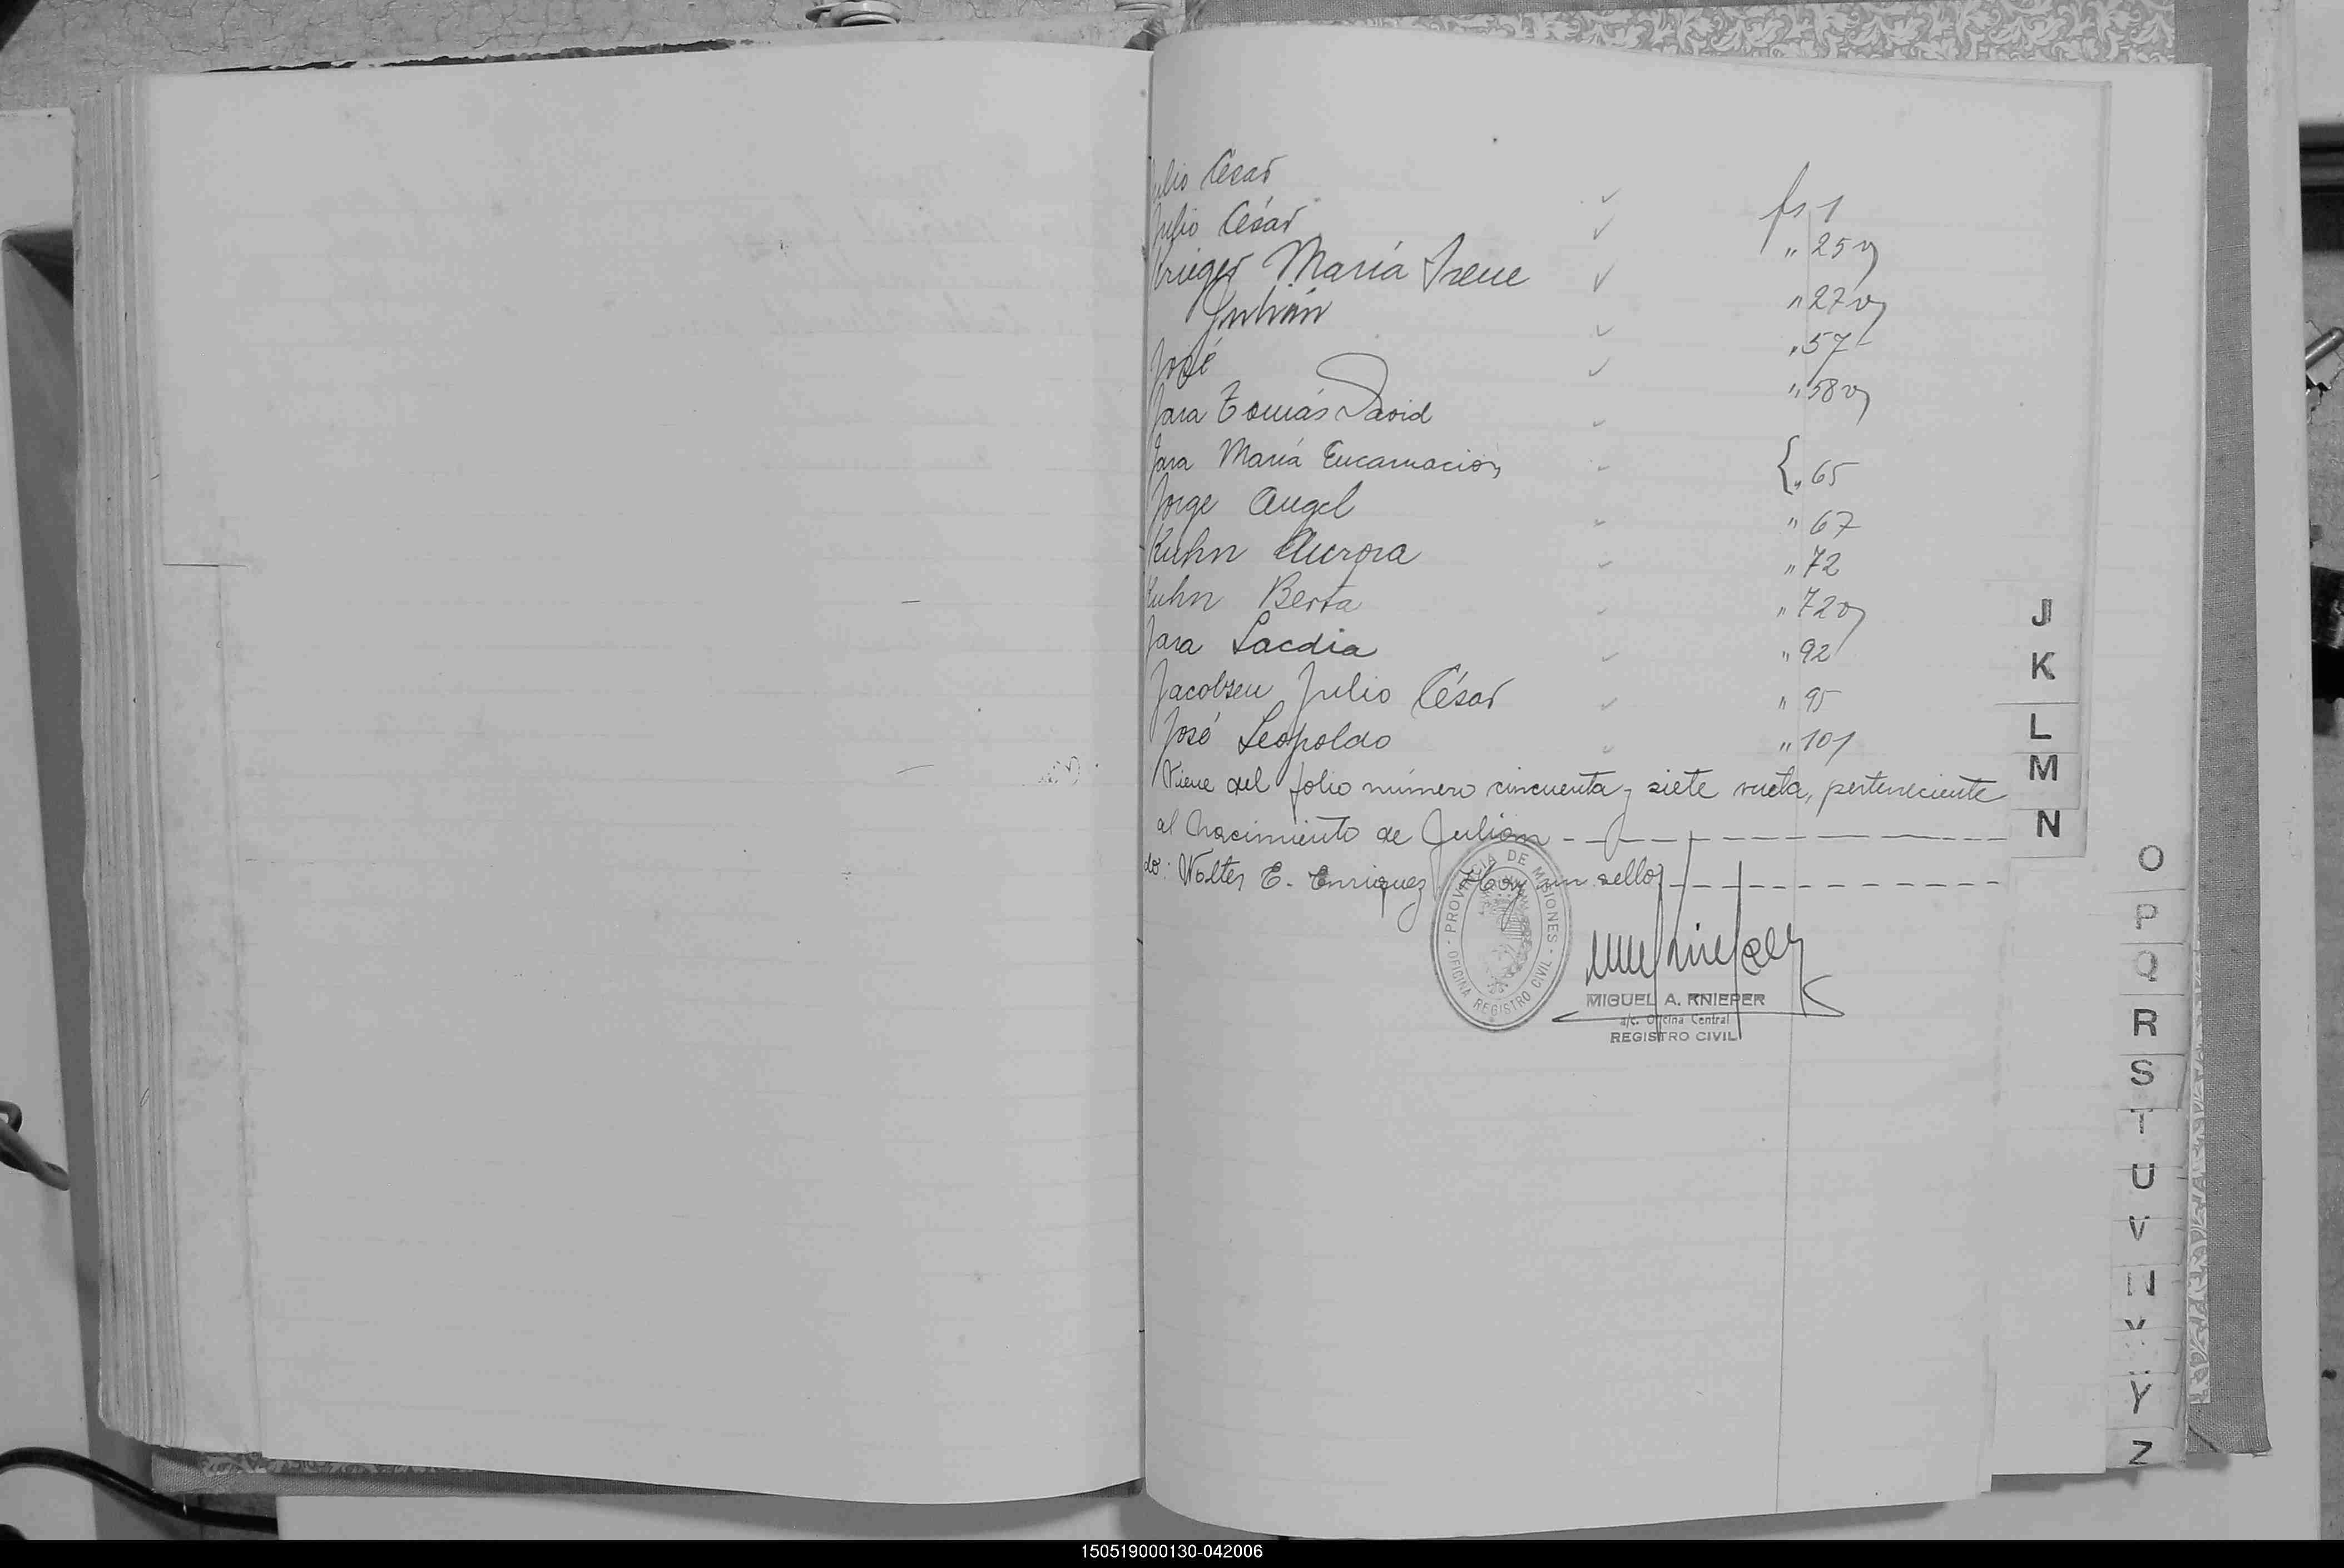 Julio César fs 1
Julio César " 25 v
Krieger María Irene " 27 v
Julián " 57
José " 58 v
Jara Tomás David
Jara María Encarnación { " 65
Jorge Angel " 67
Kuhn Aurora " 72
Kuhn Berta " 72 v
Jara Lacdia " 92
Jacobsen Julio César " 95
José Leopoldo " 101
Viene del folio número cincuenta y siete vuelta, perteneciente
al Nacimiento de Julian
do: Wolter E. Enriquez Hay un sello
PROVINCIA DE MISIONES
OFICINA REGISTRO CIVIL
MIGUEL A. KNIEPER
a/c. Oficina Central
REGISTRO CIVIL
J
K
L
M
N
O
P
Q
R
S
T
U
V
Y
Z
150519000130-042006